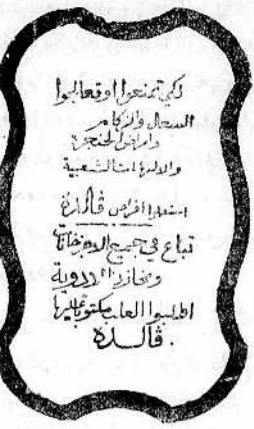 لكي تمنعوا او تعالجوا
السعال والزكام
وامراض الحنجرة
والالتهابات الشعبية
استعملوا اقراص ڤالدة
تباع في جميع الاجزاخانات
ومخازن الادوية
اطلبوا العلب مكتوبا عليها
ڤالدة.